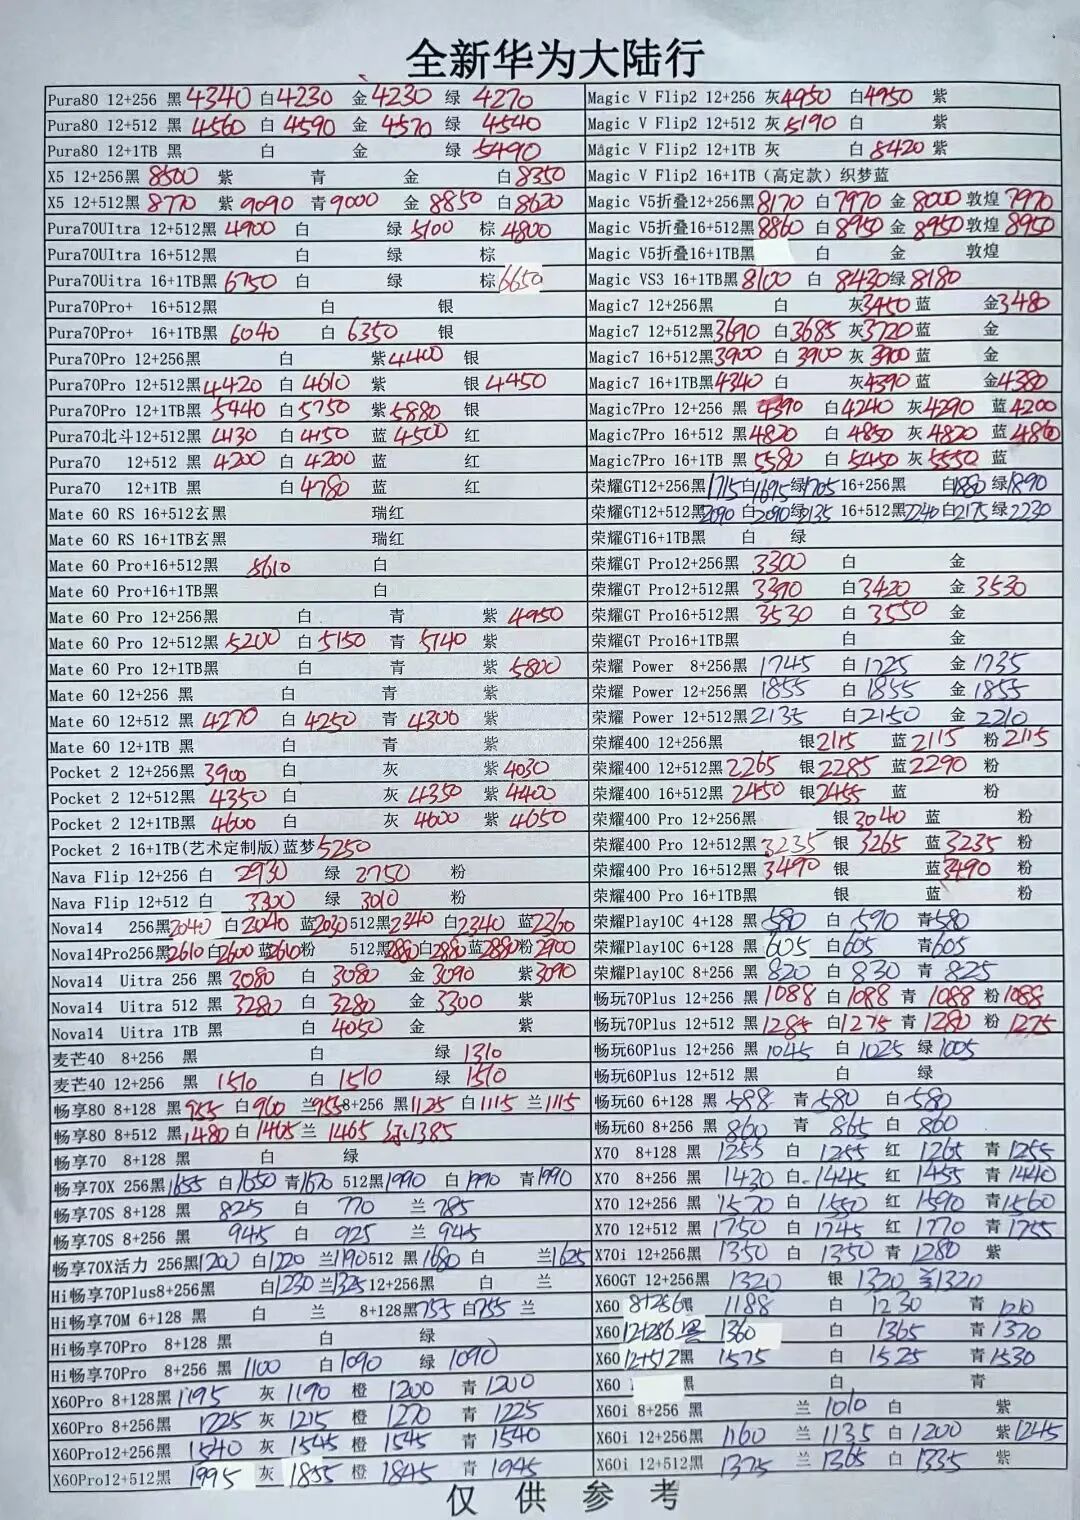 全新华为大陆行
Pura80 12+256 黑 4340 白 4230 金 4230 绿 4270
Pura80 12+512 黑 4560 白 4590 金 4570 绿 4540
Pura80 12+1TB 黑 白 金 绿 5490
X5 12+256黑 8500 紫 青 金 白 8350
X5 12+512黑 8770 紫 9090 青 9000 金 8850 白 8620
Pura70UItra 12+512黑 4900 白 绿 5100 棕 4800
Pura70UItra 16+512黑 白 绿 棕
Pura70Uitra 16+1TB黑 6750 白 绿 棕 6650
Pura70Pro+ 16+512黑 白 银
Pura70Pro+ 16+1TB黑 6040 白 6350 银
Pura70Pro 12+256黑 白 紫 4400 银
Pura70Pro 12+512黑 4420 白 4610 紫 银 4450
Pura70Pro 12+1TB黑 5440 白 5750 紫 5880 银
Pura70北斗12+512黑 4130 白 4150 蓝 4500 红
Pura70 12+512 黑 4200 白 4200 蓝 红
Pura70 12+1TB 黑 白 4780 蓝 红
Mate 60 RS 16+512玄黑 瑞红
Mate 60 RS 16+1TB玄黑 瑞红
Mate 60 Pro+16+512黑 5610 白
Mate 60 Pro+16+1TB黑 白
Mate 60 Pro 12+256黑 白 青 紫 4950
Mate 60 Pro 12+512黑 5200 白 5150 青 5140 紫
Mate 60 Pro 12+1TB黑 白 青 紫 5800
Mate 60 12+256 黑 白 青 紫
Mate 60 12+512 黑 4270 白 4250 青 4300 紫
Mate 60 12+1TB 黑 白 青 紫
Pocket 2 12+256黑 3900 白 灰 紫 4030
Pocket 2 12+512黑 4350 白 灰 4350 紫 4400
Pocket 2 12+1TB黑 4600 白 灰 4600 紫 4650
Pocket 2 16+1TB(艺术定制版)蓝梦 5250
Nava Flip 12+256 白 2930 绿 2750 粉
Nava Flip 12+512 白 3300 绿 3010 粉
Nova14 256黑 2040 白 2040 蓝 2030 512黑 2340 白 2340 蓝 2260
Nova14Pro256黑 2610 白 2600 蓝 2610 粉 512黑 2880 白 2880 蓝 2880 粉 2900
Nova14 Uitra 256 黑 3080 白 3080 金 3090 紫 3090
Nova14 Uitra 512 黑 3280 白 3280 金 3300 紫
Nova14 Uitra 1TB 黑 白 4050 金 紫
麦芒40 8+256 黑 白 绿 1310
麦芒40 12+256 黑 1510 白 1510 绿 1510
畅享80 8+128 黑 955 白 960 兰 955 8+256 黑 1125 白 1115 兰 1115
畅享80 8+512 黑 1480 白 1465 兰 1465 红 1385
畅享70 8+128 黑 白 绿
畅享70X 256黑 1655 白 1650 青 1670 512黑 1990 白 1990 青 1990
畅享70S 8+128 黑 825 白 770 兰 785
畅享70S 8+256 黑 945 白 925 兰 945
畅享70X活力 256黑 1200 白 1220 兰 1190 512 黑 1680 白 兰 1625
Hi畅享70Plus8+256黑 白 1230 兰 1325 12+256黑 白 兰
Hi畅享70M 6+128 黑 白 兰 8+128黑 755 白 755 兰
Hi畅享70Pro 8+128 黑 白 绿
Hi畅享70Pro 8+256 黑 1100 白 1090 绿 1090
X60Pro 8+128黑 1195 灰 1190 橙 1200 青 1200
X60Pro 8+256黑 1225 灰 1215 橙 1270 青 1225
X60Pro12+256黑 1540 灰 1545 橙 1545 青 1540
X60Pro12+512黑 1995 灰 1855 橙 1845 青 1945
Magic V Flip2 12+256 灰 4950 白 4950 紫
Magic V Flip2 12+512 灰 5190 白 紫
Magic V Flip2 12+1TB 灰 白 8420 紫
Magic V Flip2 16+1TB（高定款）织梦蓝
Magic V5折叠12+256黑 8170 白 7970 金 8000 敦煌 7970
Magic V5折叠16+512黑 8860 白 8950 金 8950 敦煌 8950
Magic V5折叠16+1TB黑 白 金 敦煌
Magic VS3 16+1TB黑 8100 白 8430 绿 8180
Magic7 12+256黑 白 灰 3450 蓝 金 3480
Magic7 12+512黑 3690 白 3685 灰 3720 蓝 金
Magic7 16+512黑 3900 白 3900 灰 3900 蓝 金
Magic7 16+1TB黑 4340 白 灰 4390 蓝 金 4380
Magic7Pro 12+256 黑 4390 白 4240 灰 4290 蓝 4200
Magic7Pro 16+512 黑 4820 白 4850 灰 4820 蓝 4860
Magic7Pro 16+1TB 黑 5580 白 5450 灰 5550 蓝
荣耀GT12+256黑 1715 白 1695 绿 1705 16+256黑 白 1880 绿 1890
荣耀GT12+512黑 2090 白 2090 绿 2135 16+512黑 2240 白 2175 绿 2230
荣耀GT16+1TB黑 白 绿
荣耀GT Pro12+256黑 3300 白 金
荣耀GT Pro12+512黑 3390 白 3420 金 3530
荣耀GT Pro16+512黑 3530 白 3550 金
荣耀GT Pro16+1TB黑 白 金
荣耀 Power 8+256黑 1745 白 1725 金 1735
荣耀 Power 12+256黑 1855 白 1855 金 1855
荣耀 Power 12+512黑 2135 白 2150 金 2210
荣耀400 12+256黑 银 2115 蓝 2115 粉 2115
荣耀400 12+512黑 2265 银 2285 蓝 2290 粉
荣耀400 16+512黑 2450 银 2455 蓝 粉
荣耀400 Pro 12+256黑 银 3040 蓝 粉
荣耀400 Pro 12+512黑 3235 银 3265 蓝 3235 粉
荣耀400 Pro 16+512黑 3490 银 蓝 3490 粉
荣耀400 Pro 16+1TB黑 银 蓝 粉
荣耀Play10C 4+128 黑 580 白 590 青 580
荣耀Play10C 6+128 黑 605 白 605 青 605
荣耀Play10C 8+256 黑 820 白 830 青 825
畅玩70Plus 12+256 黑 1088 白 1088 青 1088 粉 1088
畅玩70Plus 12+512 黑 1285 白 1275 青 1280 粉 1275
畅玩60Plus 12+256 黑 1045 白 1025 绿 1005
畅玩60Plus 12+512 黑 白 绿
畅玩60 6+128 黑 588 青 580 白 580
畅玩60 8+256 黑 860 青 865 白 860
X70 8+128 黑 1255 白 1255 红 1265 青 1255
X70 8+256 黑 1430 白 1445 红 1455 青 1440
X70 12+256 黑 1570 白 1550 红 1590 青 1560
X70 12+512 黑 1750 白 1745 红 1770 青 1755
X70i 12+256黑 1350 白 1350 青 1280 紫
X60GT 12+256黑 1320 银 1320 兰 1320
X60 8+256黑 1188 白 1230 青 1210
X60 12+286 黑 1360 白 1365 青 1370
X60 12+512黑 1575 白 1525 青 1530
X60 黑 白 青
X60i 8+256 黑 兰 1010 白 紫
X60i 12+256黑 1160 兰 1135 白 1200 紫 1245
X60i 12+512黑 1375 兰 1365 白 1335 紫
仅供参考